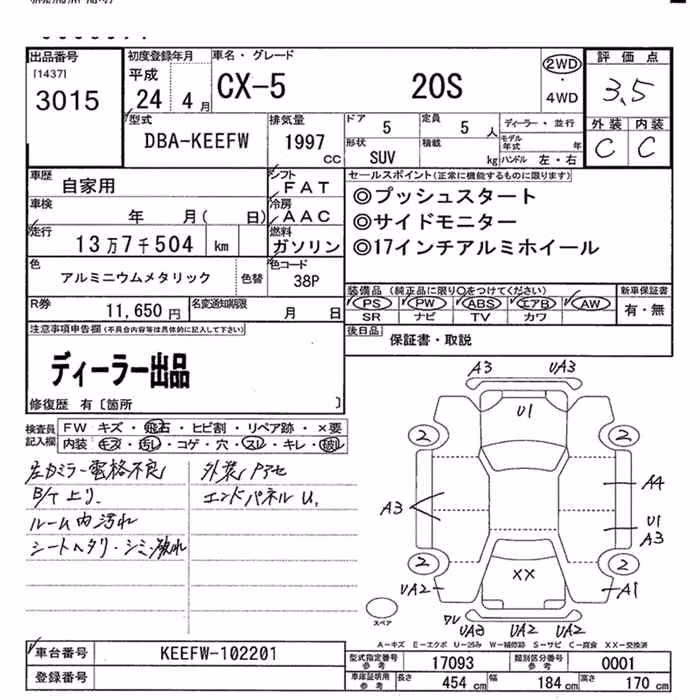 出品番号 初度登録年月 車名・グレード 評価点
[1437] 平成 2WD
3015 24 4月 CX-5 20S ・ 3.5
4WD
型式 排気量 ドア 定員 ディーラー・並行 外装 内装
DBA-KEEFW 1997 cc 5 5人 モデル年式 年 C C
形状 積載
SUV kg ハンドル 左・右
車歴 自家用 シフト FAT セールスポイント(正常に機能するものに限ります)
車検 年 月( 日) 冷房 AAC ◎プッシュスタート
走行 13万7千504 km 燃料 ガソリン ◎サイドモニター
色 色コード ◎17インチアルミホイール
アルミニウムメタリック 色替 38P
装備品(純正品に限り○をつけてください) 新車保証書
R券 11,650円 名変通知期限 月 日 PS PW ABS エアB AW 有・無
SR ナビ TV カワ
注意事項申告欄(不具合内容等は具体的に記入して下さい) 後日品 保証書・取説
ディーラー出品
修復歴 有〔箇所 〕
検査員記入欄 FW キズ・飛石・ヒビ割・リペア跡・×要
内装 キズ・汚レ・コゲ・穴・スレ・キレ・破レ
左カミラー電格不良 外装Pアセ
B/T上リ. エンドパネルU,
ルーム内汚れ
シートヘタリ・シミ・破れ
A3 UA3
U1
2 2
A4
A3
U1
A3
2 2
UA2 XX A1
スペア
ワレ
UA3 UA2 UA2
A-キズ E-エクボ U-凹み W-補修跡 S-サビ C-腐食 XX-交換済
車台番号 KEEFW-102201 型式指定番号 参考 17093 類別区分番号 参考 0001
登録番号 車庫証明用 参考 長さ 454cm 幅 184cm 高さ 170cm